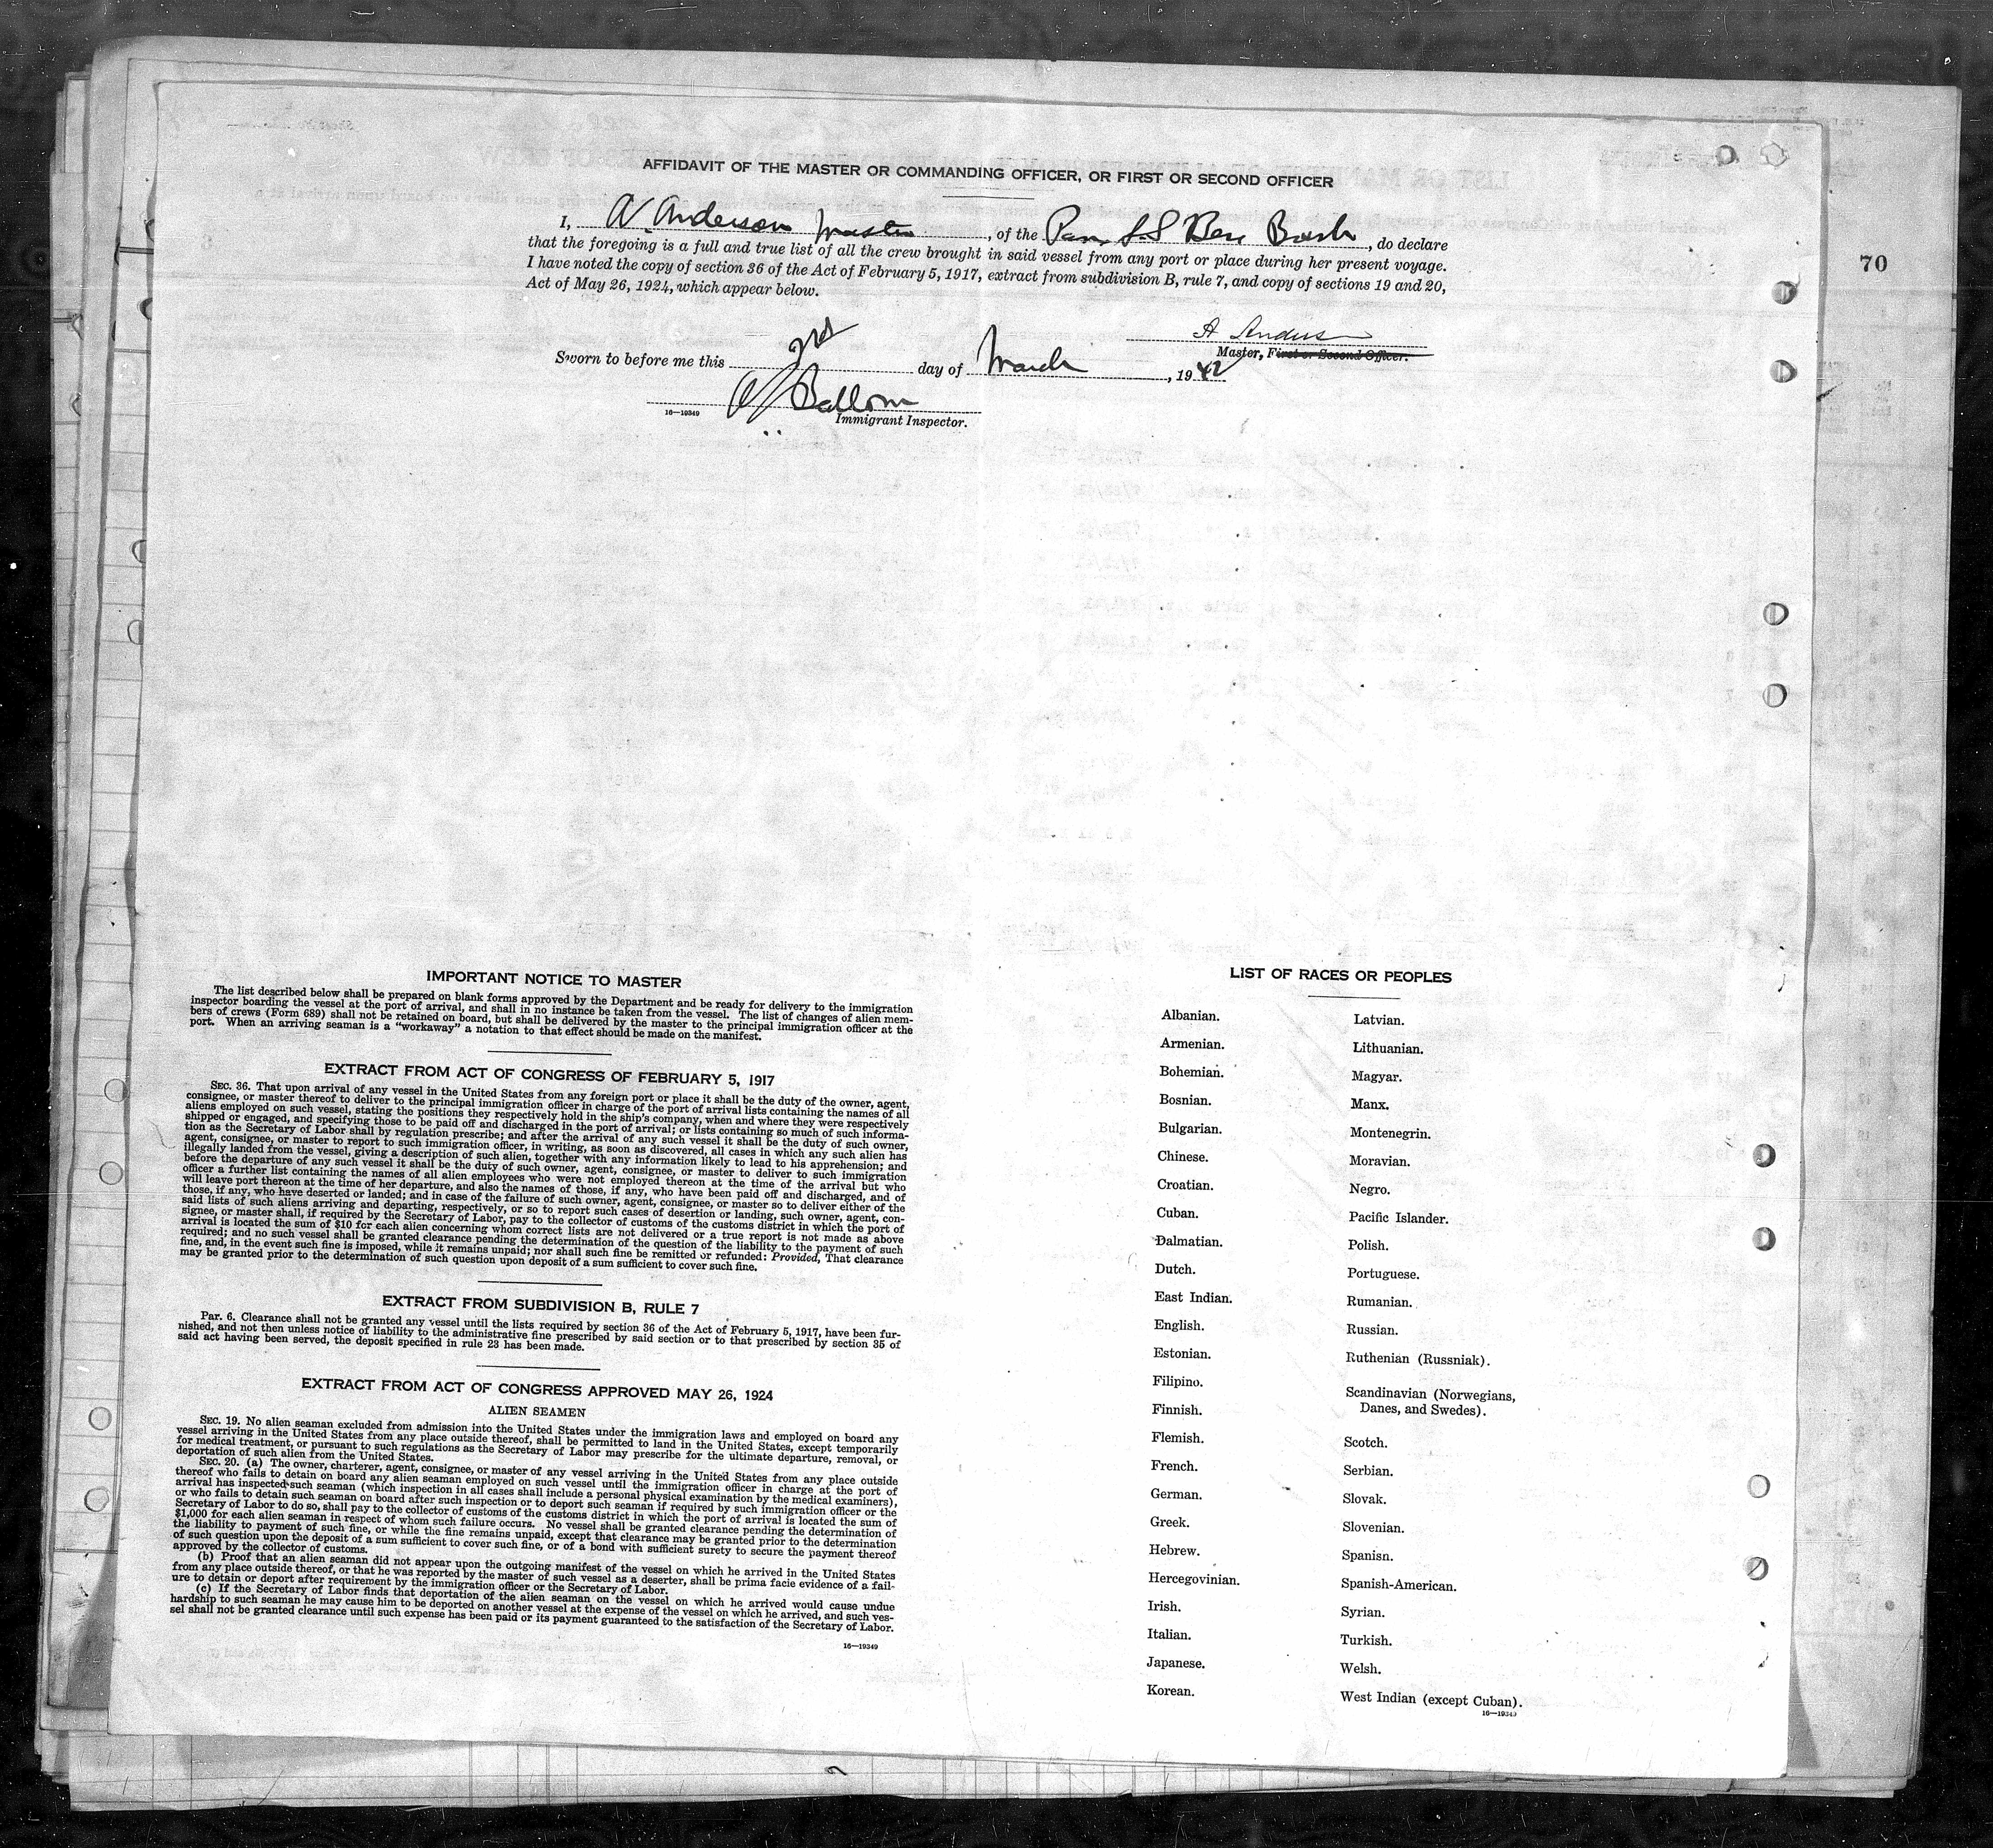 AFFIDAVIT OF THE MASTER OR COMMANDING OFFICER, OR FIRST OR SECOND OFFICER
I, A. Anderson Master, of the Pan. S.S Ben Bosh, do declare
that the foregoing is a full and true list of all the crew brought in said vessel from any port or place during her present voyage.
I have noted the copy of section 36 of the Act of February 5, 1917, extract from subdivision B, rule 7, and copy of sections 19 and 20,
Act of May 26, 1924, which appear below.
70
Master, First or Second Officer.
Sworn to before me this day of March, 1942
16—19349
Immigrant Inspector.
IMPORTANT NOTICE TO MASTER
The list described below shall be prepared on blank forms approved by the Department and be ready for delivery to the immigration
inspector boarding the vessel at the port of arrival, and shall in no instance be taken from the vessel. The list of changes of alien mem-
bers of crews (Form 689) shall not be retained on board, but shall be delivered by the master to the principal immigration officer at the
port. When an arriving seaman is a "workaway" a notation to that effect should be made on the manifest.
EXTRACT FROM ACT OF CONGRESS OF FEBRUARY 5, 1917
SEC. 36. That upon arrival of any vessel in the United States from any foreign port or place it shall be the duty of the owner, agent,
consignee, or master thereof to deliver to the principal immigration officer in charge of the port of arrival lists containing the names of all
aliens employed on such vessel, stating the positions they respectively hold in the ship's company, when and where they were respectively
shipped or engaged, and specifying those to be paid off and discharged in the port of arrival; or lists containing so much of such informa-
tion as the Secretary of Labor shall by regulation prescribe; and after the arrival of any such vessel it shall be the duty of such owner,
agent, consignee, or master to report to such immigration officer, in writing, as soon as discovered, all cases in which any such alien has
illegally landed from the vessel, giving a description of such alien, together with any information likely to lead to his apprehension; and
before the departure of any such vessel it shall be the duty of such owner, agent, consignee, or master to deliver to such immigration
officer a further list containing the names of all alien employees who were not employed thereon at the time of the arrival but who
will leave port thereon at the time of her departure, and also the names of those, if any, who have been paid off and discharged, and of
those, if any, who have deserted or landed; and in case of the failure of such owner, agent, consignee, or master so to deliver either of the
said lists of such aliens arriving and departing, respectively, or so to report such cases of desertion or landing, such owner, agent, con-
signee, or master shall, if required by the Secretary of Labor, pay to the collector of customs of the customs district in which the port of
arrival is located the sum of $10 for each alien concerning whom correct lists are not delivered or a true report is not made as above
required; and no such vessel shall be granted clearance pending the determination of the question of the liability to the payment of such
fine, and, in the event such fine is imposed, while it remains unpaid; nor shall such fine be remitted or refunded: Provided, That clearance
may be granted prior to the determination of such question upon deposit of a sum sufficient to cover such fine.
EXTRACT FROM SUBDIVISION B, RULE 7
Par. 6. Clearance shall not be granted any vessel until the lists required by section 36 of the Act of February 5, 1917, have been fur-
nished, and not then unless notice of liability to the administrative fine prescribed by said section or to that prescribed by section 35 of
said act having been served, the deposit specified in rule 23 has been made.
EXTRACT FROM ACT OF CONGRESS APPROVED MAY 26, 1924
ALIEN SEAMEN
SEC. 19. No alien seaman excluded from admission into the United States under the immigration laws and employed on board any
vessel arriving in the United States from any place outside thereof, shall be permitted to land in the United States, except temporarily
for medical treatment, or pursuant to such regulations as the Secretary of Labor may prescribe for the ultimate departure, removal, or
deportation of such alien from the United States.
SEC. 20. (a) The owner, charterer, agent, consignee, or master of any vessel arriving in the United States from any place outside
thereof who fails to detain on board any alien seaman employed on such vessel until the immigration officer in charge at the port of
arrival has inspected such seaman (which inspection in all cases shall include a personal physical examination by the medical examiners),
or who fails to detain such seaman on board after such inspection or to deport such seaman if required by such immigration officer or the
Secretary of Labor to do so, shall pay to the collector of customs of the customs district in which the port of arrival is located the sum of
$1,000 for each alien seaman in respect of whom such failure occurs. No vessel shall be granted clearance pending the determination of
the liability to payment of such fine, or while the fine remains unpaid, except that clearance may be granted prior to the determination
of such question upon the deposit of a sum sufficient to cover such fine, or of a bond with sufficient surety to secure the payment thereof
approved by the collector of customs.
(b) Proof that an alien seaman did not appear upon the outgoing manifest of the vessel on which he arrived in the United States
from any place outside thereof, or that he was reported by the master of such vessel as a deserter, shall be prima facie evidence of a fail-
ure to detain or deport after requirement by the immigration officer or the Secretary of Labor.
(c) If the Secretary of Labor finds that deportation of the alien seaman on the vessel on which he arrived would cause undue
hardship to such seaman he may cause him to be deported on another vessel at the expense of the vessel on which he arrived, and such ves-
sel shall not be granted clearance until such expense has been paid or its payment guaranteed to the satisfaction of the Secretary of Labor.
16—19349
LIST OF RACES OR PEOPLES
Albanian.
Armenian.
Bohemian.
Bosnian.
Bulgarian.
Chinese.
Croatian.
Cuban.
Dalmatian.
Dutch.
East Indian.
English.
Estonian.
Filipino.
Finnish.
Flemish.
French.
German.
Greek.
Hebrew.
Hercegovinian.
Irish.
Italian.
Japanese.
Korean.
Latvian.
Lithuanian.
Magyar.
Manx.
Montenegrin.
Moravian.
Negro.
Pacific Islander.
Polish.
Portuguese.
Rumanian.
Russian.
Ruthenian (Russniak).
Scandinavian (Norwegians,
Danes, and Swedes).
Scotch.
Serbian.
Slovak.
Slovenian.
Spanisn.
Spanish-American.
Syrian.
Turkish.
Welsh.
West Indian (except Cuban).
16—19349